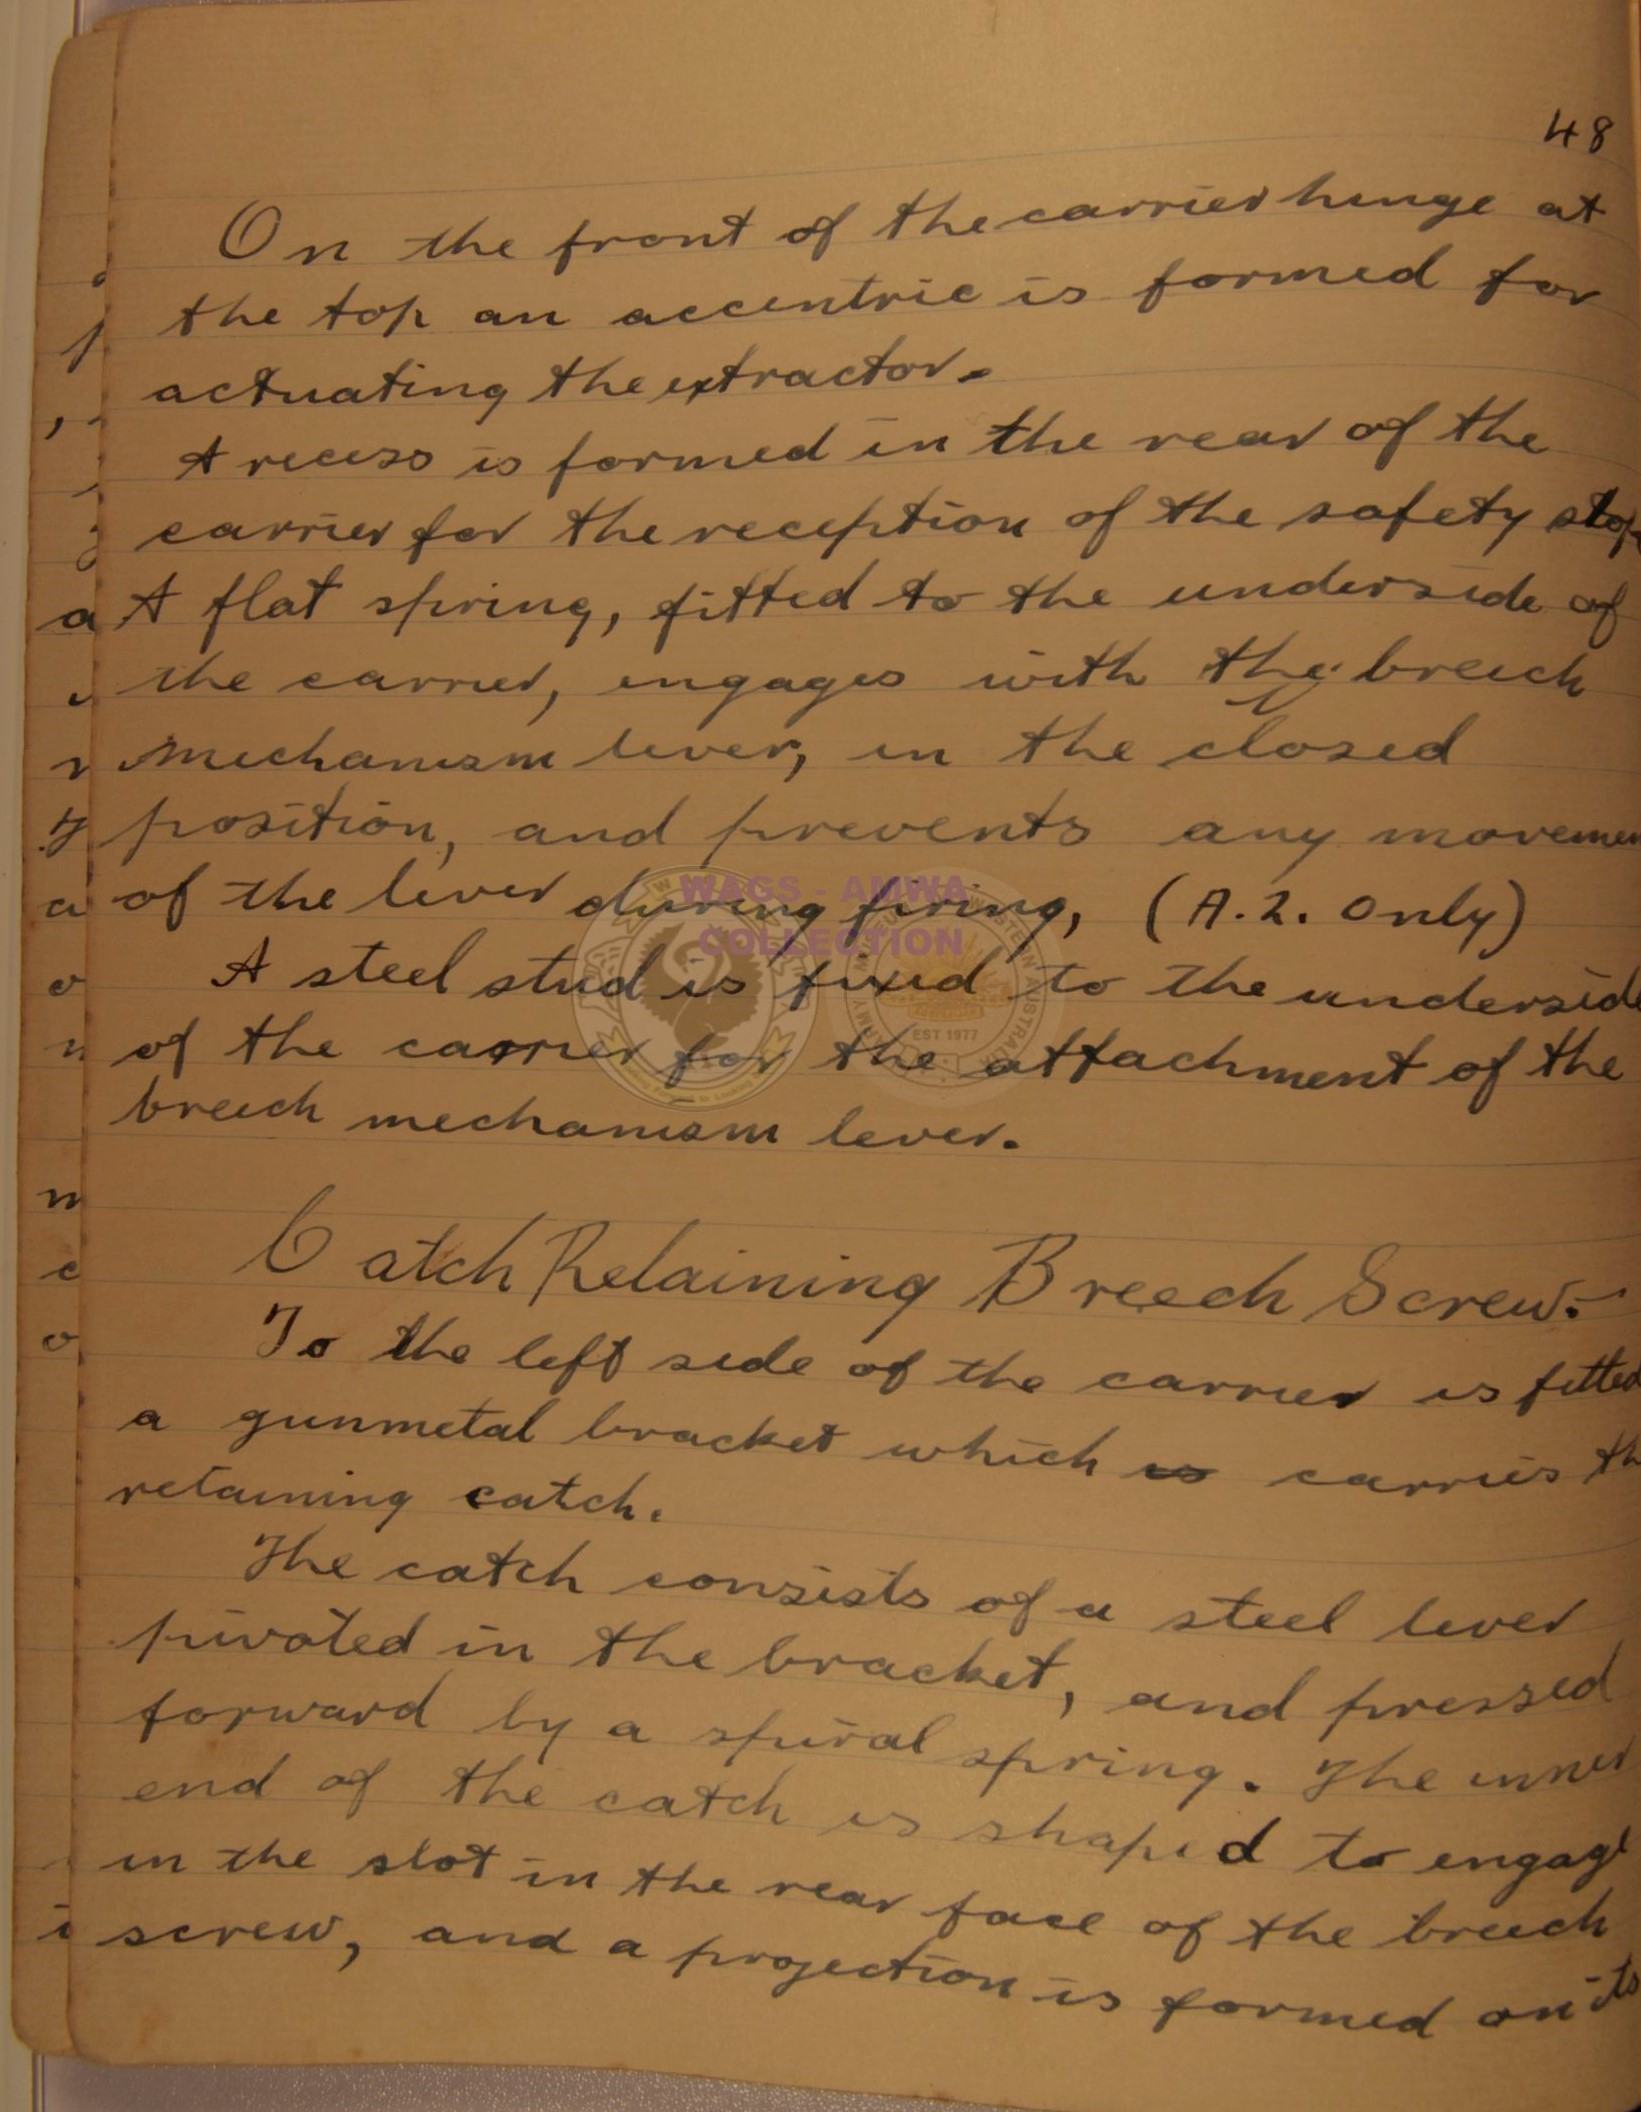 48
On the front of the carrier hinge at
the top an accentric is formed for
actuating the extractor.
A recess is formed in the rear of the
carrier for the reception of the safety stop
A flat spring, fitted to the underside of
the carrier, engages with the breech
mechanism lever, in the closed
position, and prevents any movemen
of the lever during firing, (A.2. only)
A steel stud is fixed to the undersid
of the carrier for the attachment of the
breech mechanism lever.
Catch Retaining Breech Screw.
To the left side of the carrier is fitted
a gunmetal bracket which is carries th
retaining catch.
The catch consists of a steel lever
pivoted in the bracket, and pressed
forward by a spiral spring. The inner
end of the catch is shaped to engage
in the slot in the rear face of the breech
screw, and a projection is formed on its
WAGS - AMWA
COLLECTION
EST 1977